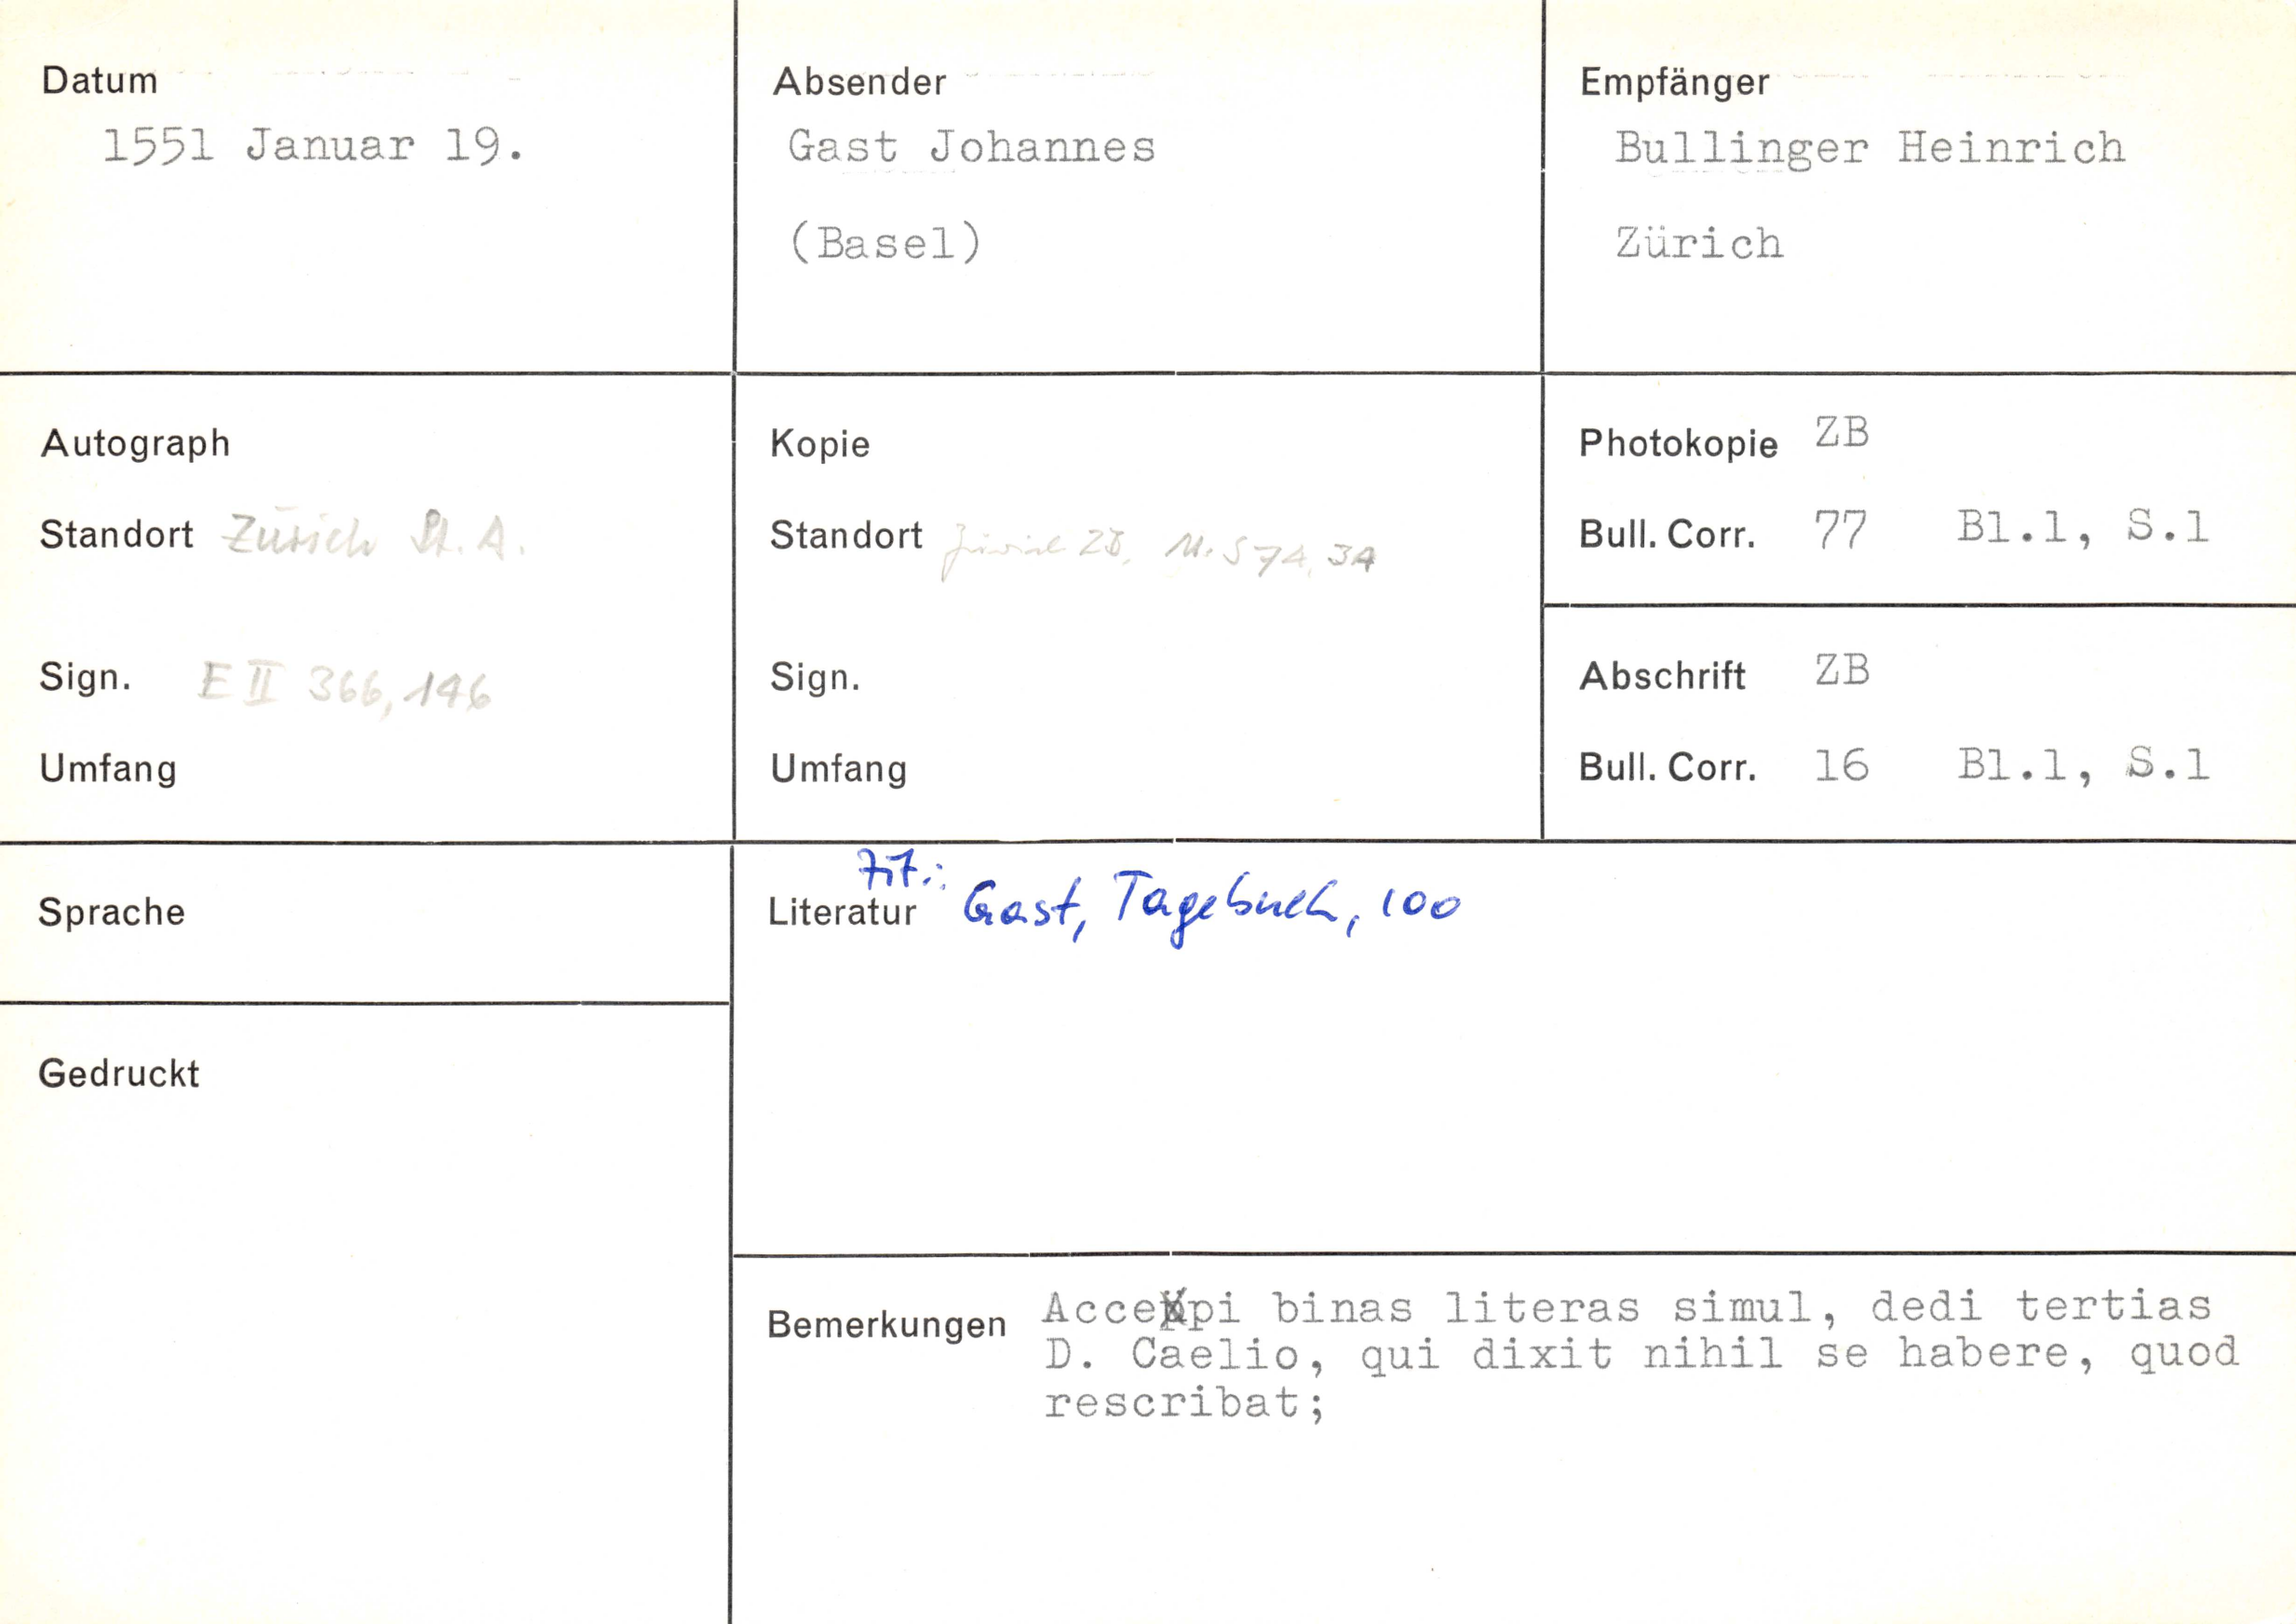 Datum
1551 Januar 19.
Absender
Gast Johannes
(Basel)
Empfänger
Bullinger Heinrich
Zürich
Autograph
Standort Zürich St. A.
Sign. E II 366, 146
Umfang
Kopie
Standort Zürich ZB, Ms S 74, 34
Sign.
Umfang
Photokopie ZB
Bull. Corr. 77 Bl.1, S.1
Abschrift ZB
Bull. Corr. 16 Bl.1, S.1
Sprache
Gedruckt
zit.:
Literatur Gast, Tagebuch, 100
Bemerkungen Accepi binas literas simul, dedi tertias
D. Caelio, qui dixit nihil se habere, quod
rescribat;